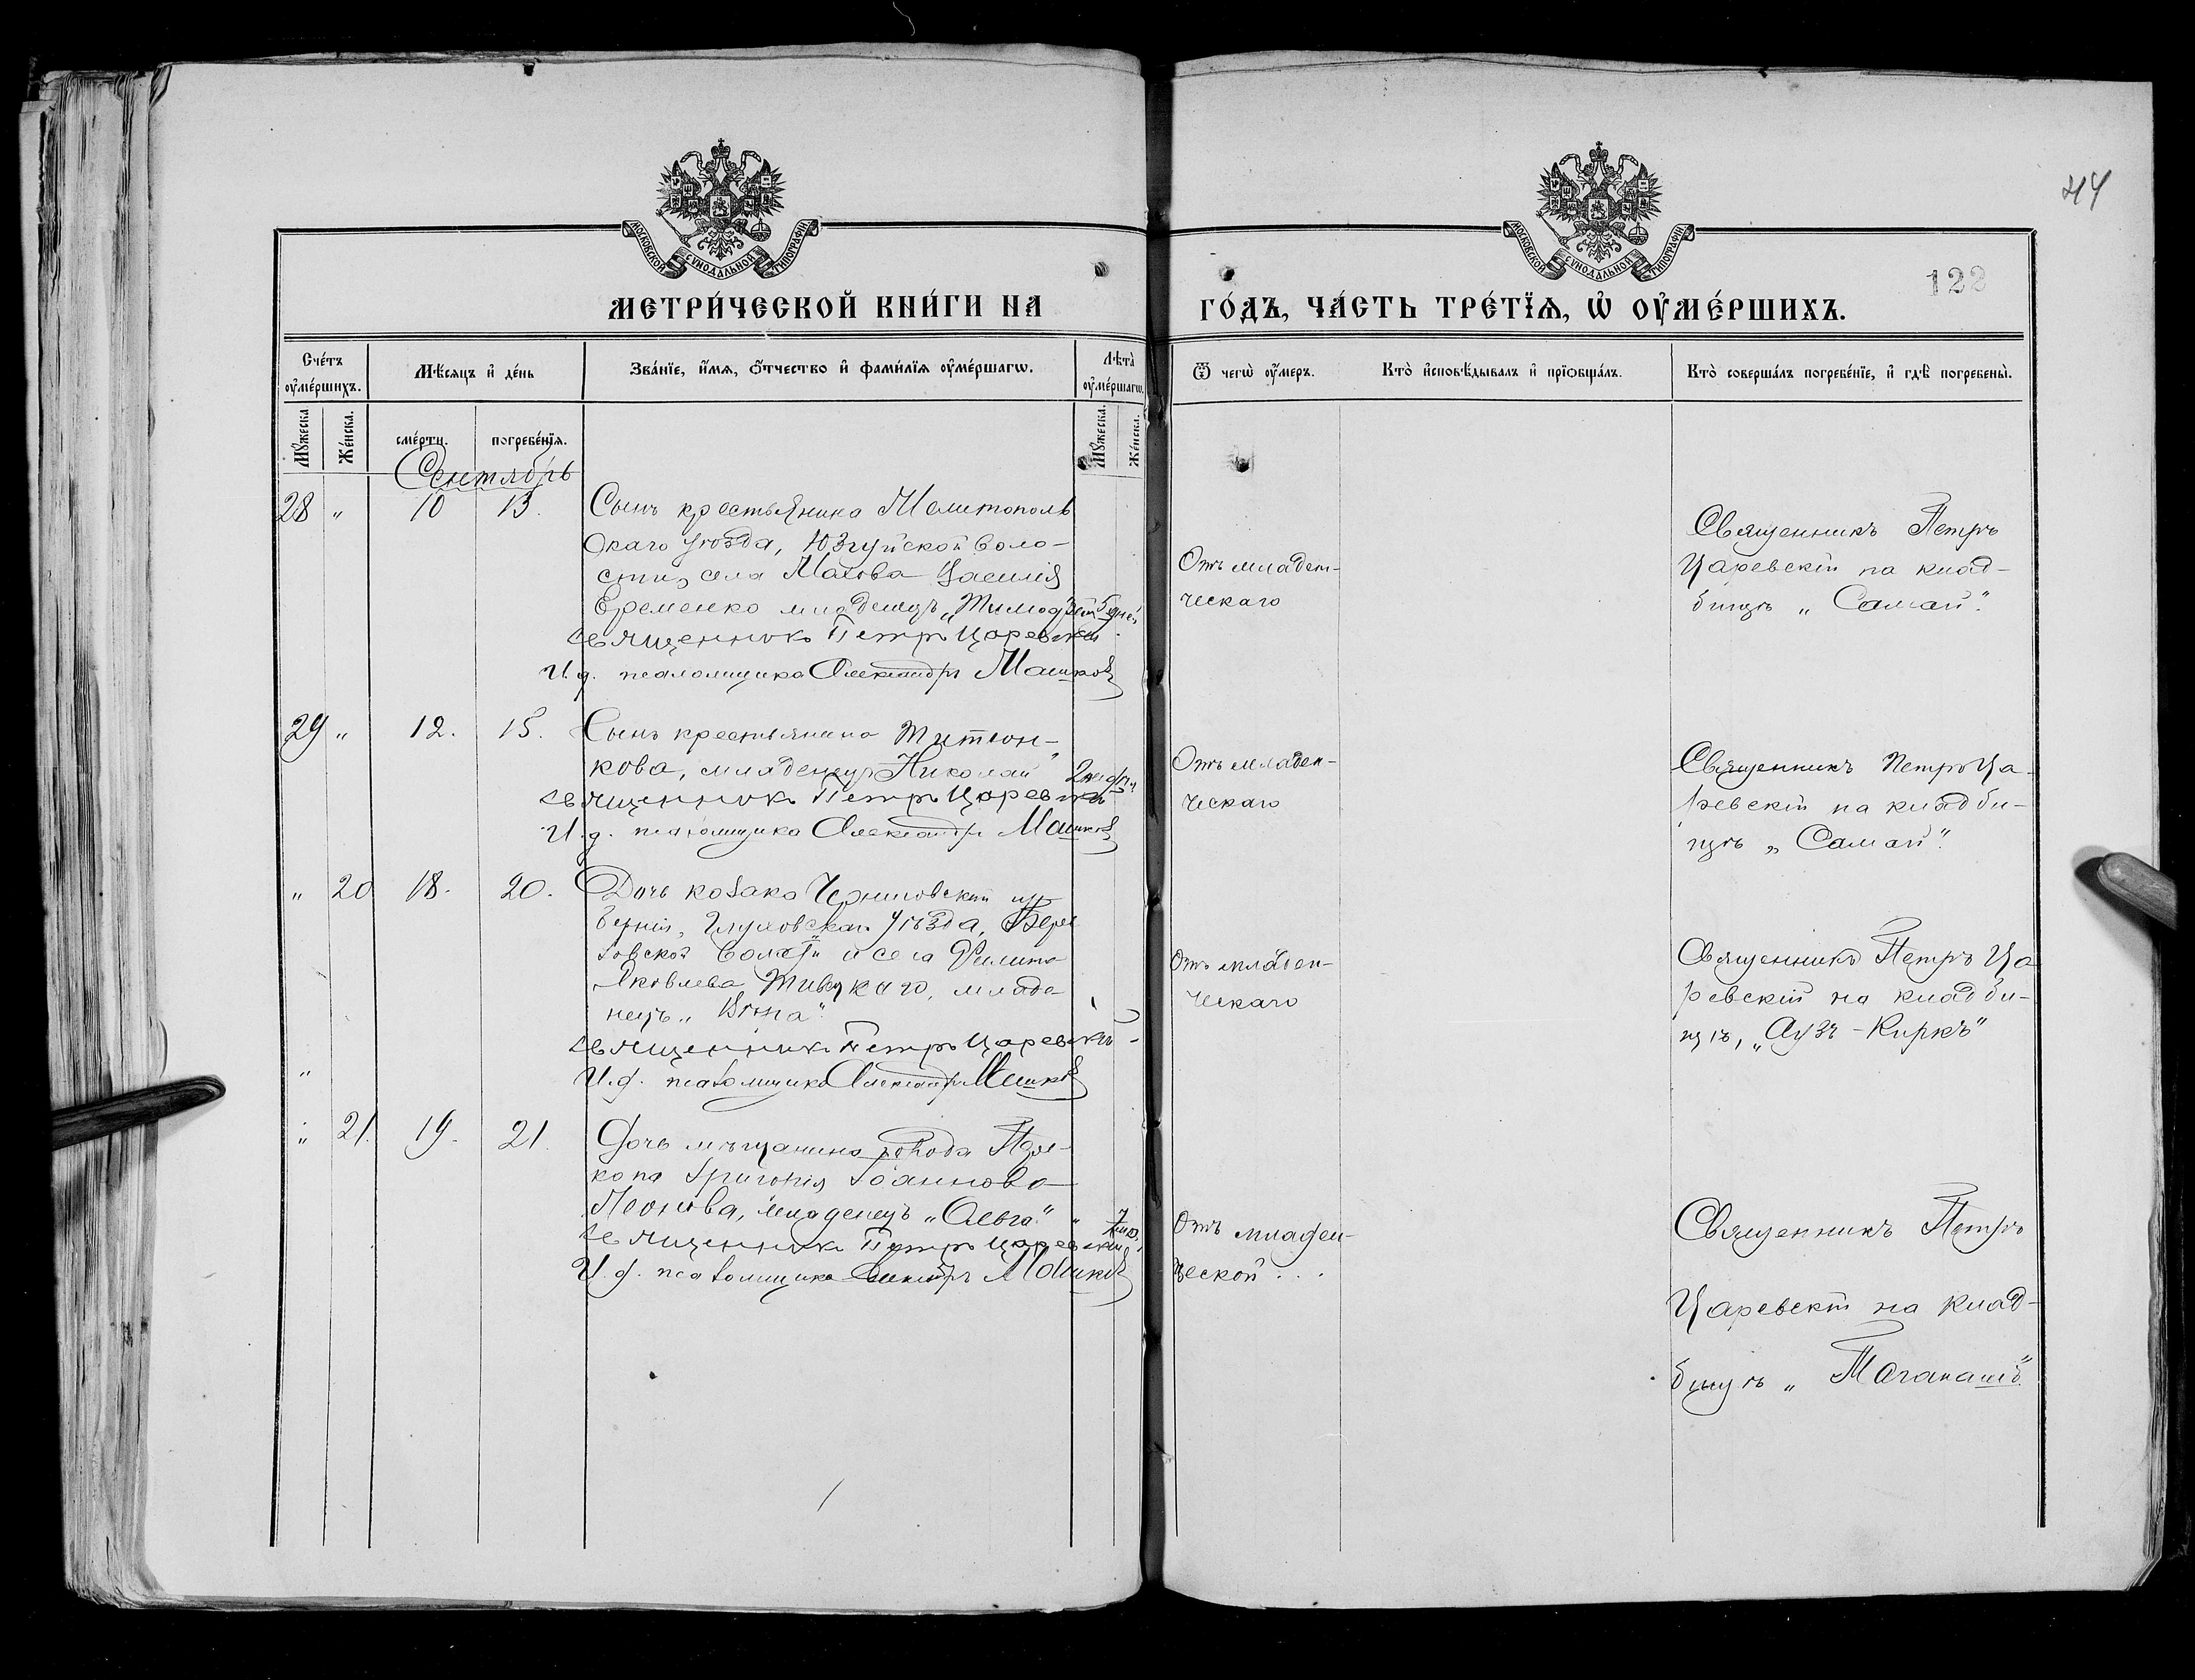 44
122
МОСКОВСКОЙ СѴНОДАЛЬНОЙ ТИПОГРАФІИ
МОСКОВСКОЙ СѴНОДАЛЬНОЙ ТИПОГРАФІИ
МЕТРИ́ЧЕСКОЙ КНИ́ГИ НА
ГО́ДЪ, ЧА́СТЬ ТРЕ́ТЇѦ, Ѡ҆ ОУ҆МЕ́РШИХЪ.
Сче́тъ оу҆ме́ршихъ.
Мѣ́сяцъ и҆ де́нь
Зва́нїе, и҆́мѧ, ѻ҆́тчество и҆ фами́лїѧ оу҆ме́ршагѡ.
Лѣта̀ оу҆ме́ршагѡ.
Ѿ чегѡ̀ оу҆́меръ.
Кто̀ и҆сповѣ́дывалъ и҆ прїѡбща́лъ.
Кто̀ соверша́лъ погребе́нїе, и҆ гдѣ̀ погребены̀.
Мꙋ́жеска.
Же́нска.
сме́рти.
погребе́нїѧ.
Мꙋ́жеска.
Же́нска.
Сентябрь
28 " 10 13.
Сынъ крестьянина Мелитополь
скаго уѣзда, Юзгуйской воло-
сти, села Василія
Еременко младенецъ „Тимофей" 5 дней
священникъ Петръ Царевскій
И. д. псаломщика Александръ Машков
Отъ младен-
ческаго
Священникъ Петръ
Царевскій на клад-
бищѣ „Самай".
29 " 12. 15.
Сынъ крестьянина
кова, младенецъ „Николай"
священникъ Петръ Царевскій
И. д. псаломщика Александръ Машков
Отъ младен-
ческаго
Священникъ Петръ Ца-
ревскій на кладби-
щѣ „Самай".
" 20 18. 20.
Дочь козака Черниговской гу
берніи, Глуховскаго уѣзда,
волости и села Филипа
Яковлева младе-
нецъ
священникъ Петръ Царевскій
И. д. псаломщика Александръ Машков
Отъ младен-
ческаго
Священникъ Петръ Ца
ревскій на кладби-
щѣ, „Аузъ-Киркъ"
"
" 21. 19. 21.
Дочь мѣщанина города Пере-
копа Григорія Іоаннова
Леонова, младенецъ „Ольга". "
священникъ Петръ Царевскій
И. д. псаломщика Александръ Машков
Отъ младен-
ческой...
Священникъ Петръ
Царевскій на клад-
бищѣ „Магапашъ".